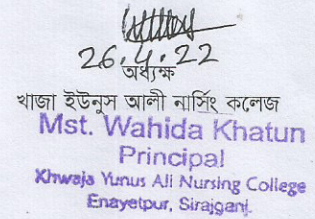 26.4.22
অধ্যক্ষ
খাজা ইউনুস আলী নার্সিং কলেজ
Mst. Wahida Khatun
Principal
Khwaja Yunus Ali Nursing College
Enayetpur, Sirajganj.